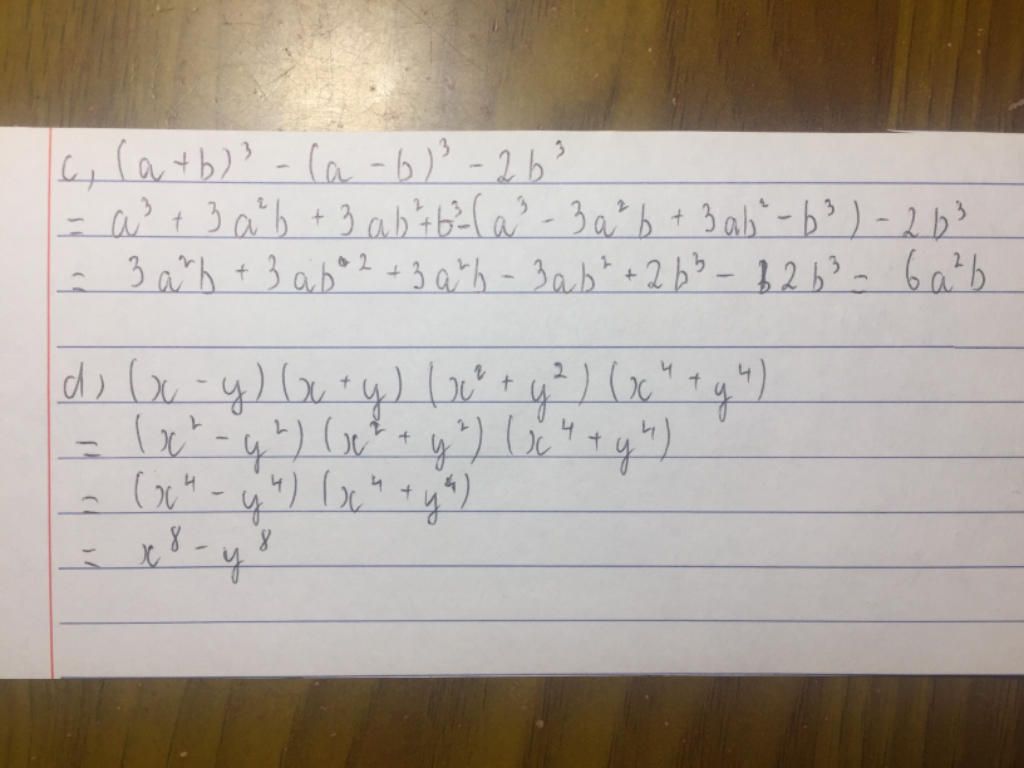 c, (a + b)³ - (a - b)³ - 2b³
= a³ + 3a²b + 3ab² + b³ - (a³ - 3a²b + 3ab² - b³) - 2b³
= 3a²b + 3ab² + 3a²b - 3ab² + 2b³ - 2b³ = 6a²b
d) (x - y)(x + y)(x² + y²)(x⁴ + y⁴)
= (x² - y²)(x² + y²)(x⁴ + y⁴)
= (x⁴ - y⁴)(x⁴ + y⁴)
= x⁸ - y⁸